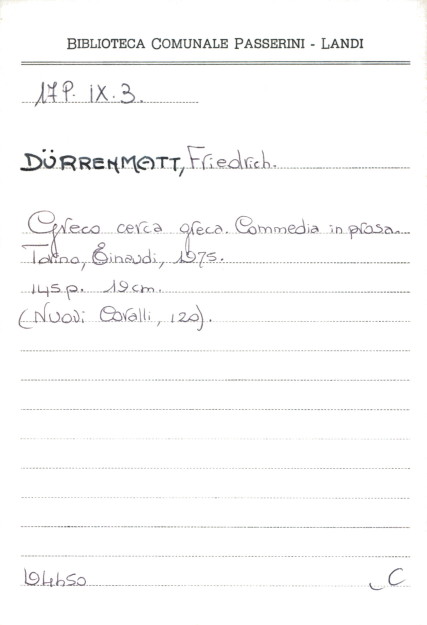 BIBLIOTECA COMUNALE PASSERINI - LANDI
17P. IX. 3.
DÜRRENMATT, Friedrich.
Greco cerca greca. Commedia in prosa.
Torino, Einaudi, 1975.
145 p. 19 cm.
(Nuovi Coralli, 120).
194450
C